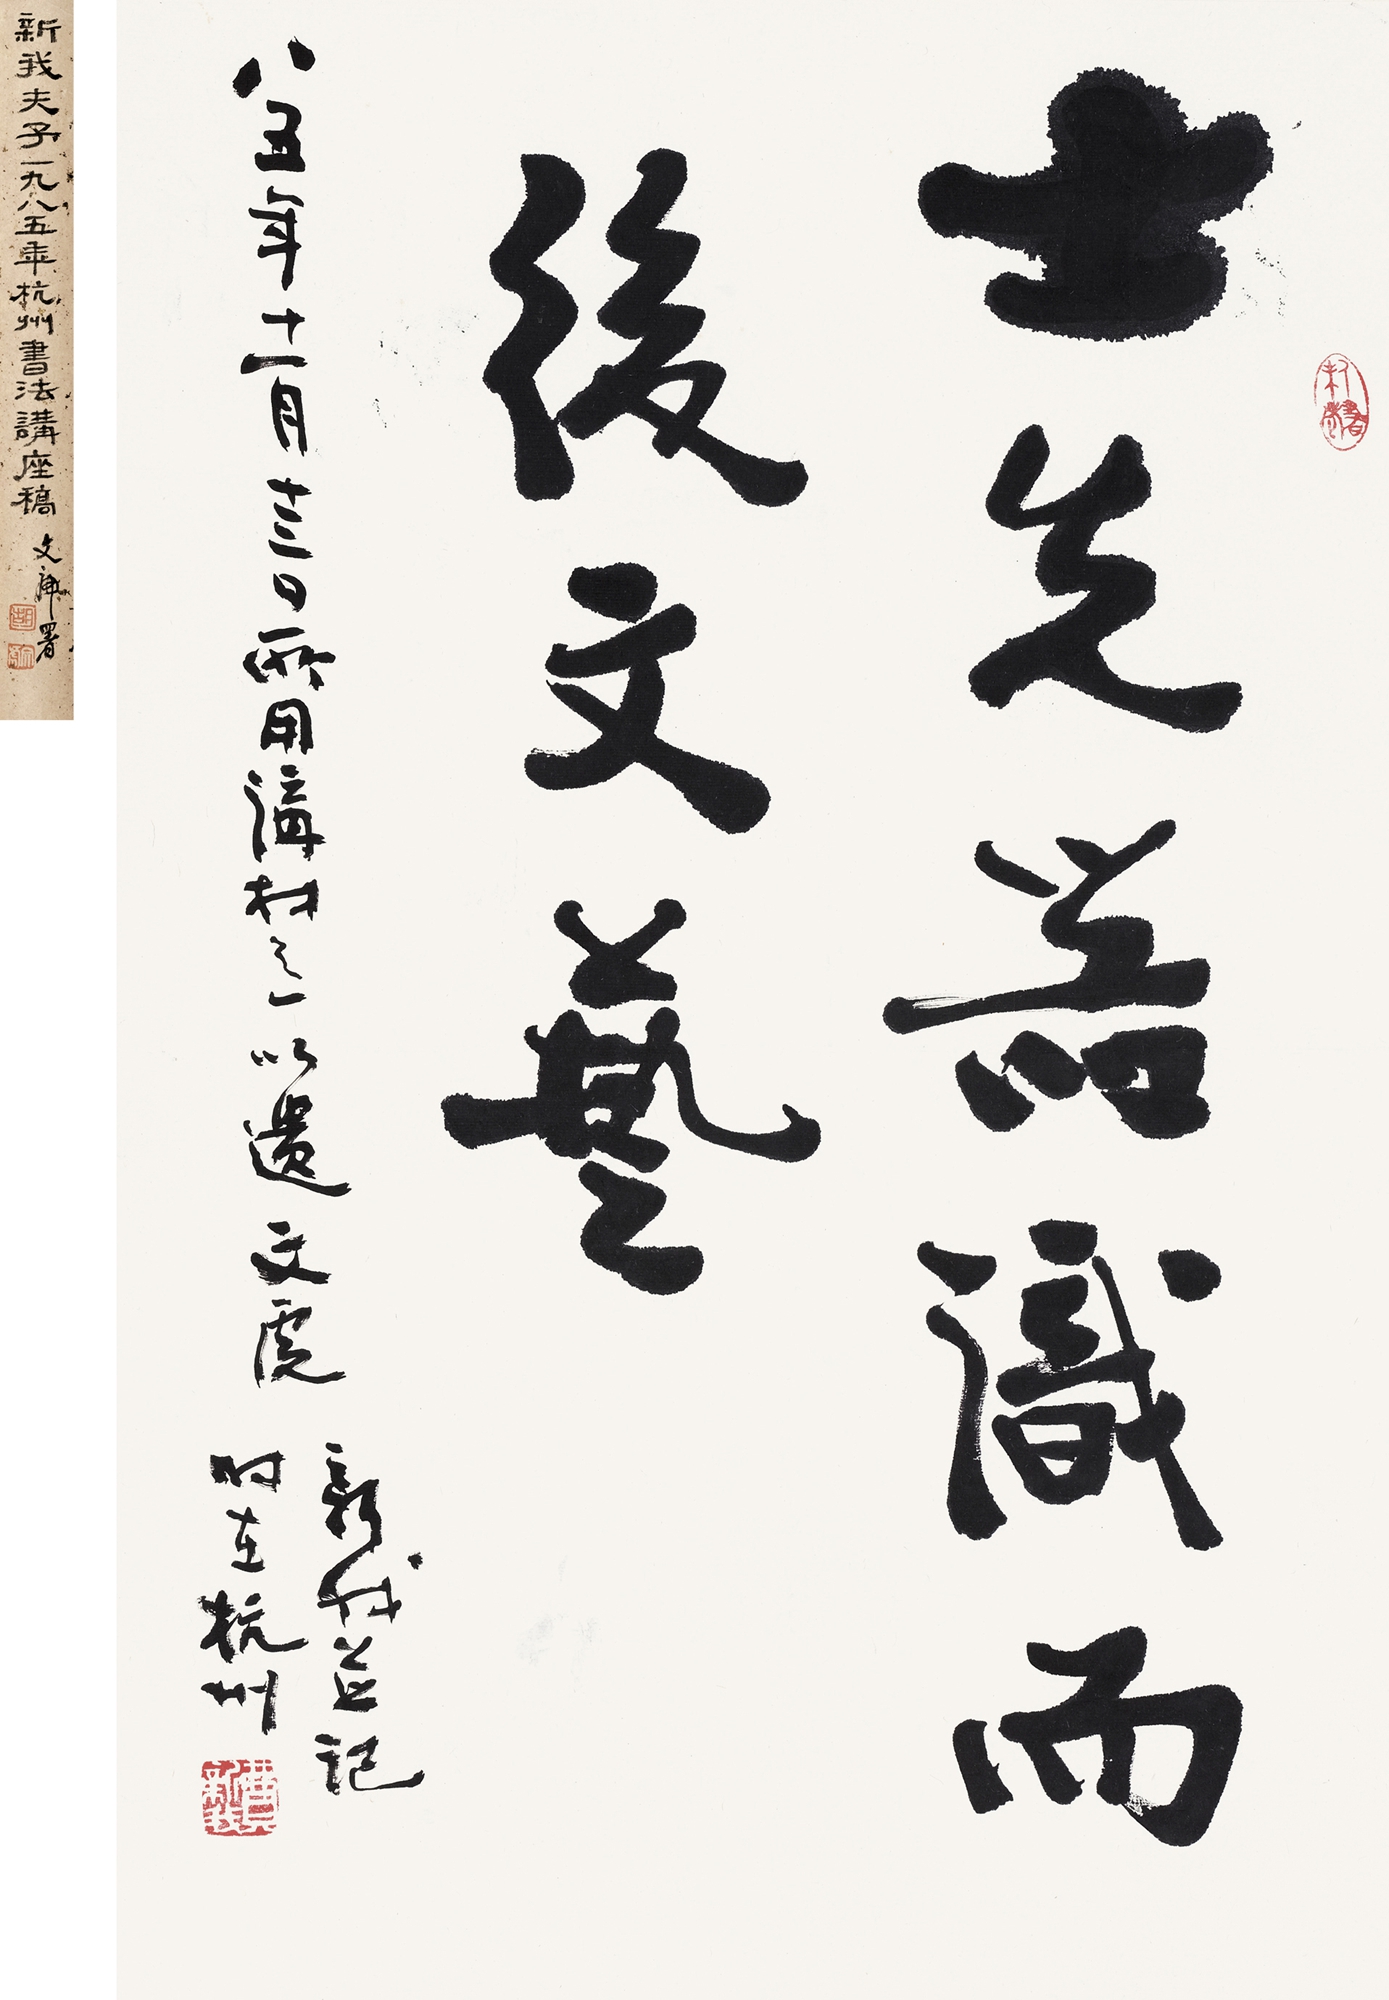 士先器識而
後文藝
八五年十一月十三日所用講材之一以遺文虎
新我並記
时在杭州
費新我
新我夫子一九八五年杭州書法講座稿
文虎署